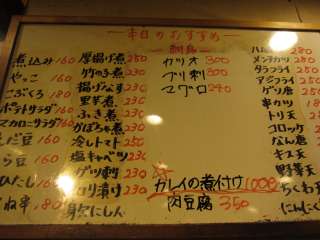 本日のおすすめ
煮込み 160
やっこ 160
こぶくろ 180
ポテトサラダ 160
マカロニサラダ 160
だ豆 160
ら豆 160
ひたし 160
ねぎ 180
厚揚げ煮 250
竹の子煮 230
揚げなす 230
里芋煮 230
ふき煮 230
かぼちゃ煮 230
冷しトマト 250
塩キャベツ 230
ゲソ刺 230
ロリ漬け 230
身欠にしん
刺身
カツオ 300
ブリ刺 300
マグロ 240
カレイの煮付け 1000
肉豆腐 350
ハム
メンチカツ 280
タラフライ 250
アジフライ 250
ゲソ唐
串カツ
トリ天
コロッケ
なん唐
キス天
野菜天
ちくわ天
にんにく